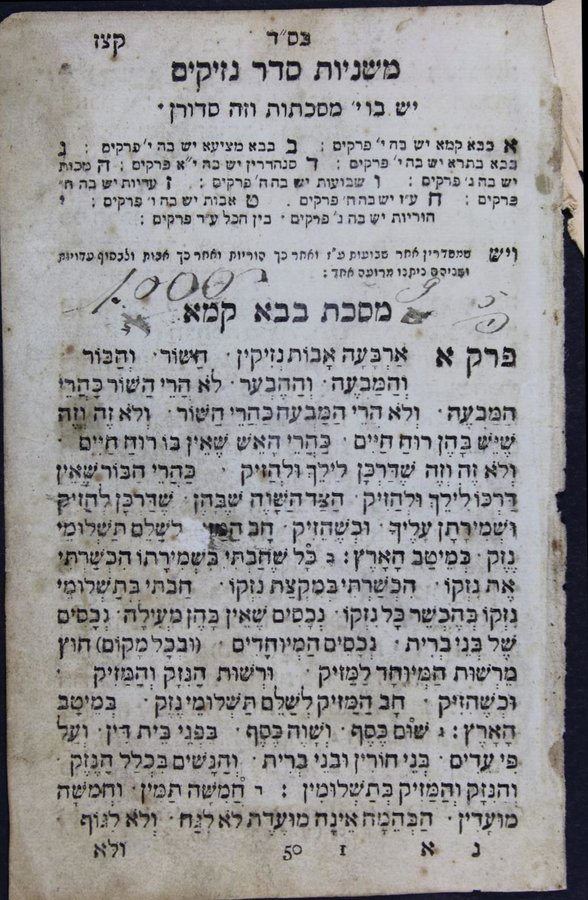 בס״ד קצז
משניות סדר נזיקים
יש בו י׳ מסכתות וזה סדורן ׃
א בבא קמא יש בה י׳ פרקים : ב בבא מציעא יש בה י׳ פרקים : ג
בבא בתרא יש בה י׳ פרקים : ד סנהדרין יש בה י״א פרקים : ה מכות
יש בה ג׳ פרקים : ו שבועות יש בה ח׳ פרקים : ז עדיות יש בה ח׳
פרקים : ח ע״ז יש בה ה׳ פרקים . ט אבות יש בה ו׳ פרקים : י
הוריות יש בה ג׳ פרקים · בין הכל ע״ד פרקים :
ויש שמסדרין אחר שבועות ע״ז ואחר כך הוריות ואחר כך אבות ולבסוף עדויות
ושניהם ניתנו מרועה אחד :
1.000
מסכת בבא קמא
פרק א אַרְבָּעָה אָבוֹת נְזִיקִין · הַשּׁוֹר · וְהַבּוֹר
וְהַמַּבְעֶה · וְהַהֶבְעֵר · לֹא הֲרֵי הַשּׁוֹר כַּהֲרֵי
הַמַּבְעֶה · וְלֹא הֲרֵי הַמַּבְעֶה כַּהֲרֵי הַשּׁוֹר · וְלֹא זֶה וָזֶה
שֶׁיֵּשׁ בָּהֶן רוּחַ חַיִּים · כַּהֲרֵי הָאֵשׁ שֶׁאֵין בּוֹ רוּחַ חַיִּים ·
וְלֹא זֶה וָזֶה שֶׁדַּרְכָּן לֵילֵךְ וּלְהַזִּיק · כַּהֲרֵי הַבּוֹר שֶׁאֵין
דַּרְכּוֹ לֵילֵךְ וּלְהַזִּיק · הַצַּד הַשָּׁוֶה שֶׁבָּהֶן · שֶׁדַּרְכָּן לְהַזִּיק
וּשְׁמִירָתָן עָלֶיךָ · וּכְשֶׁהִזִּיק · חָב הַמַּזִּיק לְשַׁלֵּם תַּשְׁלוּמֵי
נֶזֶק · בְּמֵיטַב הָאָרֶץ : ב כֹּל שֶׁחַבְתִּי בִּשְׁמִירָתוֹ הִכְשַׁרְתִּי
אֶת נִזְקוֹ · הִכְשַׁרְתִּי בְּמִקְצַת נִזְקוֹ · חַבְתִּי בְּתַשְׁלוּמֵי
נִזְקוֹ כְּהֶכְשֵׁר כָּל נִזְקוֹ · נְכָסִים שֶׁאֵין בָּהֶן מְעִילָה · נְכָסִים
שֶׁל בְּנֵי בְרִית · נְכָסִים הַמְיוּחָדִים · (וּבְכָל מָקוֹם) חוּץ
מֵרְשׁוּת הַמְיוּחֶד לַמַּזִּיק · וּרְשׁוּת הַנִּזָּק וְהַמַּזִּיק ·
וּכְשֶׁהִזִּיק · חָב הַמַּזִּיק לְשַׁלֵּם תַּשְׁלוּמֵי נֶזֶק · בְּמֵיטַב
הָאָרֶץ : ג שׁוּם כֶּסֶף · וְשָׁוֶה כֶּסֶף · בִּפְנֵי בֵּית דִּין · וְעַל
פִּי עֵדִים · בְּנֵי חוֹרִין וּבְנֵי בְרִית · וְהַנָּשִׁים בִּכְלַל הַנֶּזֶק ·
וְהַנִּזָּק וְהַמַּזִּיק בְּתַשְׁלוּמִין : ד חֲמִשָּׁה תַּמִּין · וַחֲמִשָּׁה
מוּעָדִין · הַבְּהֵמָה אֵינָהּ מוּעֶדֶת לֹא לִגַּח · וְלֹא לִגּוֹף ·
נ א 1 50 ולא